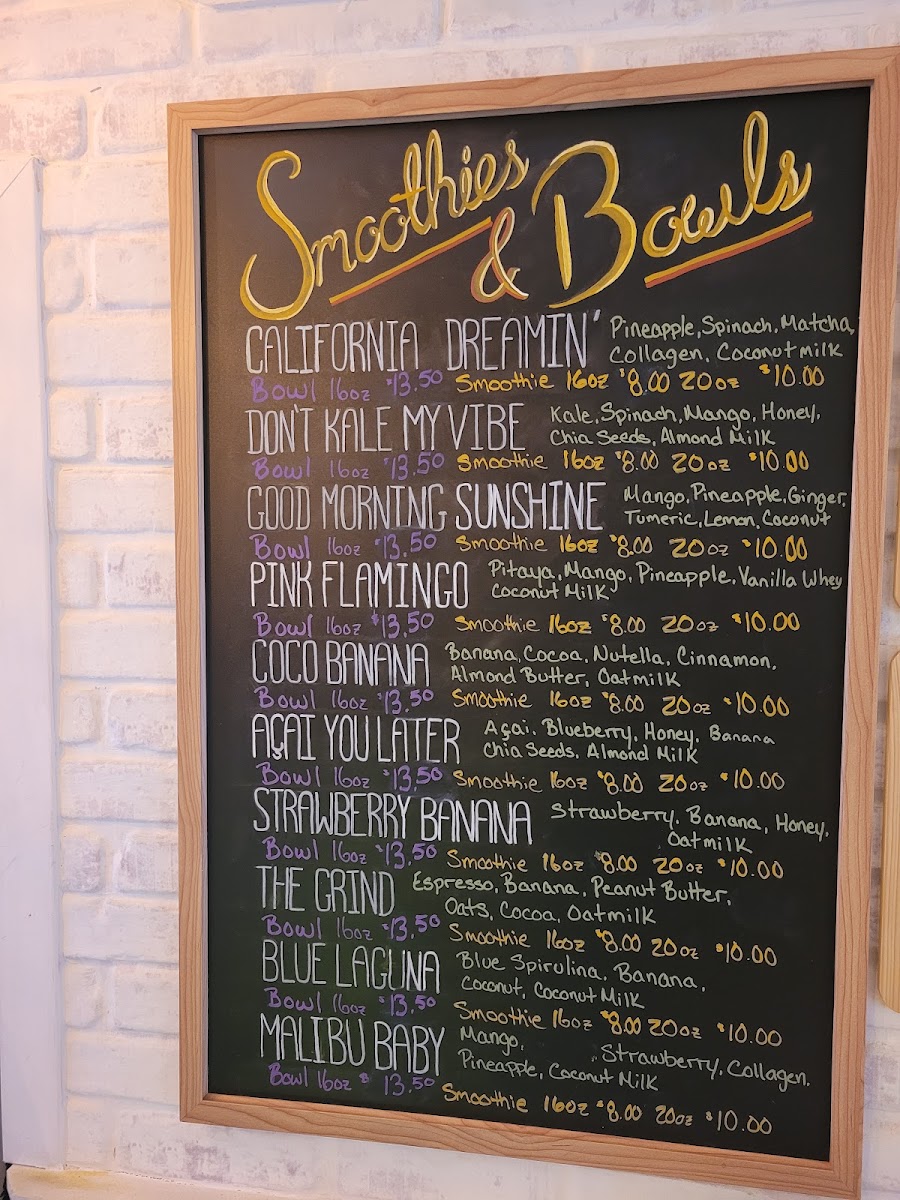 Smoothies & Bowls
CALIFORNIA DREAMIN' Pineapple, Spinach, Matcha,
Collagen, Coconut milk
Bowl 16oz $13.50 Smoothie 16oz $8.00 20oz $10.00
DON'T KALE MY VIBE Kale, Spinach, Mango, Honey,
Chia Seeds, Almond Milk
Bowl 16oz $13.50 Smoothie 16oz $8.00 20oz $10.00
GOOD MORNING SUNSHINE Mango, Pineapple, Ginger,
Tumeric, Lemon, Coconut
Bowl 16oz $13.50 Smoothie 16oz $8.00 20oz $10.00
PINK FLAMINGO Pitaya, Mango, Pineapple, Vanilla Whey
Coconut Milk
Bowl 16oz $13.50 Smoothie 16oz $8.00 20oz $10.00
COCO BANANA Banana, Cocoa, Nutella, Cinnamon,
Almond Butter, Oatmilk
Bowl 16oz $13.50 Smoothie 16oz $8.00 20oz $10.00
AÇAI YOU LATER Açai, Blueberry, Honey, Banana
Chia Seeds, Almond Milk
Bowl 16oz $13.50 Smoothie 16oz $8.00 20oz $10.00
STRAWBERRY BANANA Strawberry, Banana, Honey,
Oatmilk
Bowl 16oz $13.50 Smoothie 16oz $8.00 20oz $10.00
THE GRIND Espresso, Banana, Peanut Butter,
Oats, Cocoa, Oatmilk
Bowl 16oz $13.50 Smoothie 16oz $8.00 20oz $10.00
BLUE LAGUNA Blue Spirulina, Banana,
Coconut, Coconut Milk
Bowl 16oz $13.50 Smoothie 16oz $8.00 20oz $10.00
MALIBU BABY Mango, Strawberry, Collagen,
Pineapple, Coconut Milk
Bowl 16oz $13.50 Smoothie 16oz $8.00 20oz $10.00